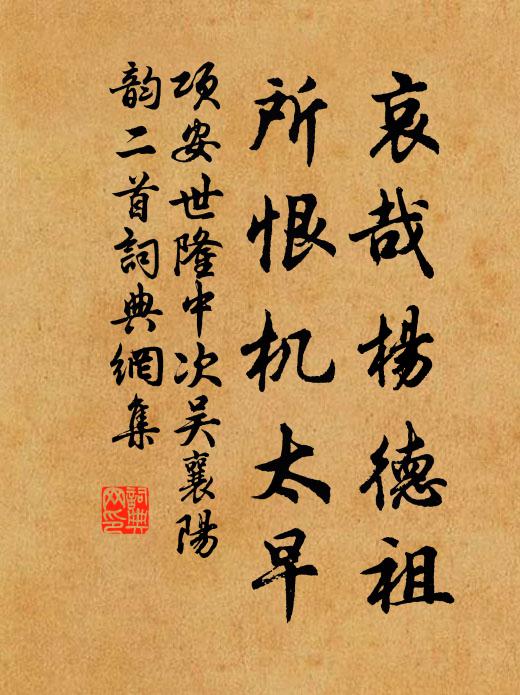 哀哉楊德祖
所恨机太早
项安世隆中次吴襄陽
韵二首詞典網集
詞典
网印